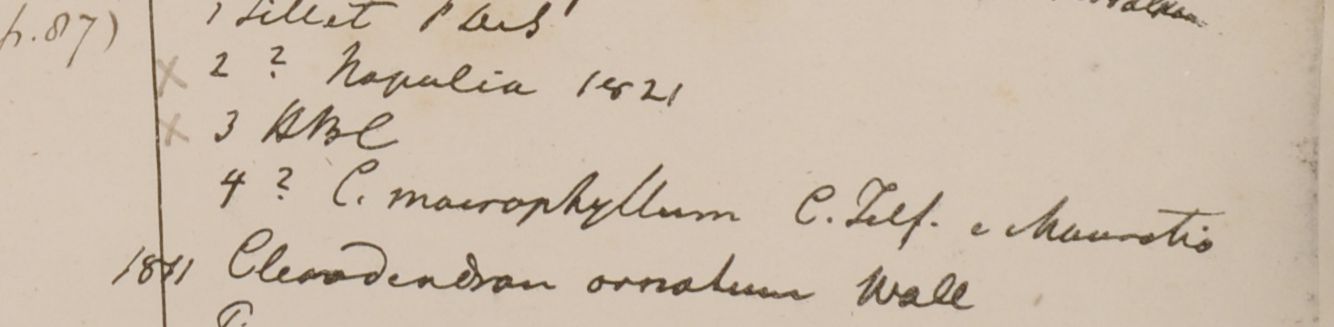 1 Sillet
p. 87)
2 ? Napalia 1821
3 HBC
4 ? C. macrophyllum C. Telf. e Mauratio
1811 Clerodendron ornatum Wall